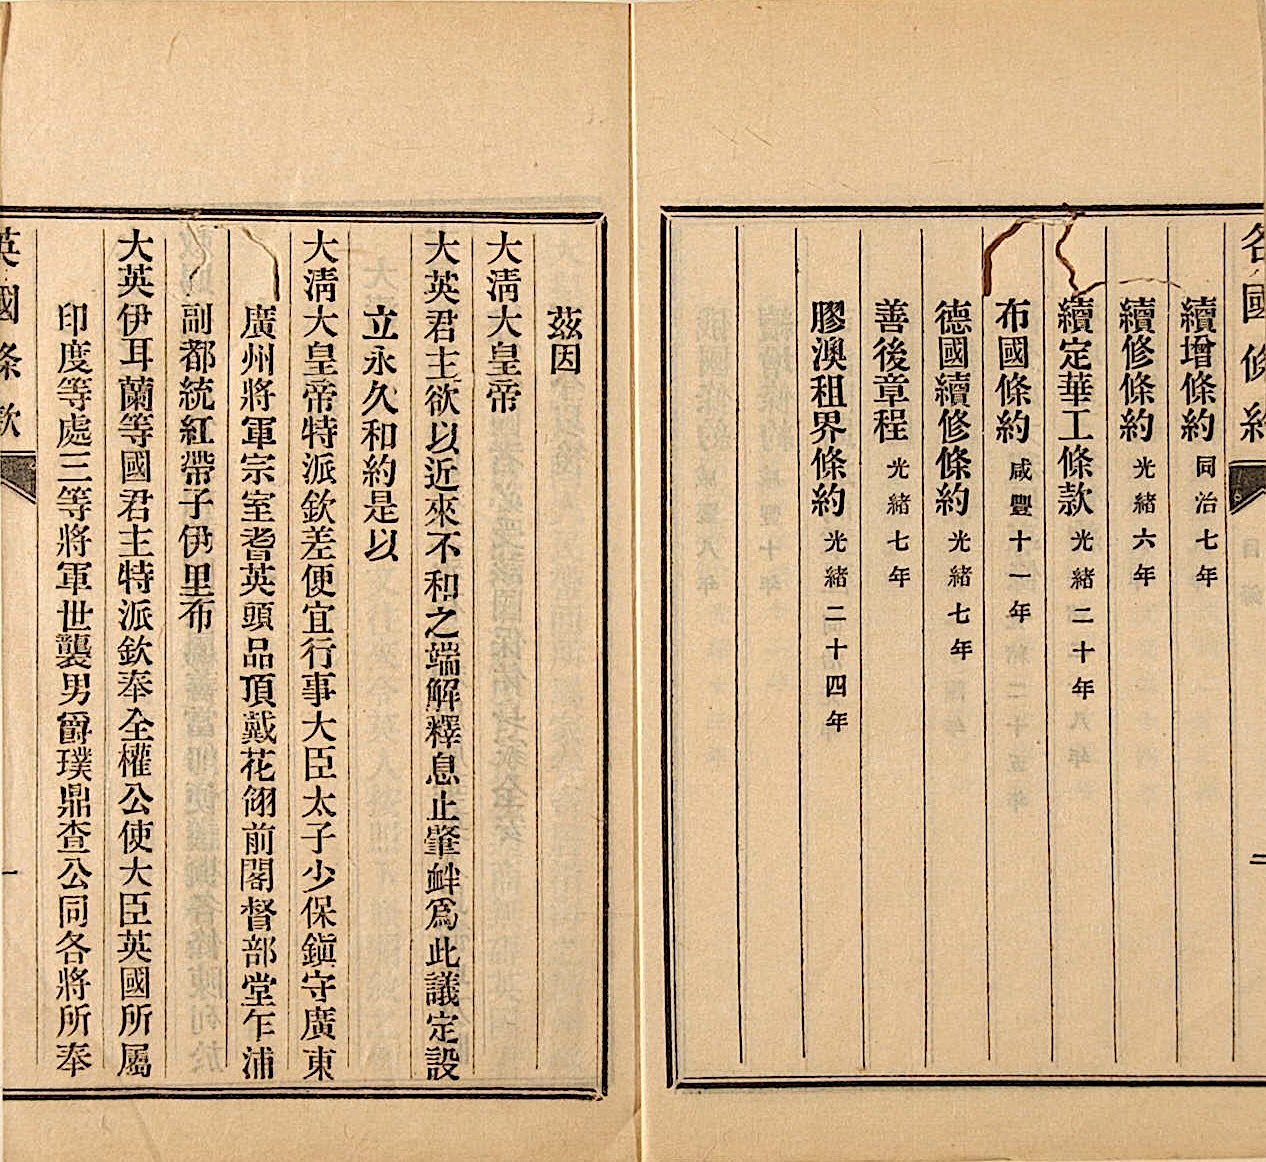 各國條約
目錄
二
續增條約 同治七年
續修條約 光緒六年
續定華工條款 光緒二十年
布國條約 咸豐十一年
德國續修條約 光緒七年
善後章程 光緒七年
膠澳租界條約 光緒二十四年
茲因
大清大皇帝
大英君主欲以近來不和之端解釋息止肇衅爲此議定設
立永久和約是以
大清大皇帝特派欽差便宜行事大臣太子少保鎭守廣東
廣州將軍宗室耆英頭品頂戴花翎前閣督部堂乍浦
副都統紅帶子伊里布
大英伊耳蘭等國君主特派欽奉全權公使大臣英國所屬
印度等處三等將軍世襲男爵璞鼎查公同各將所奉
英國條款
一